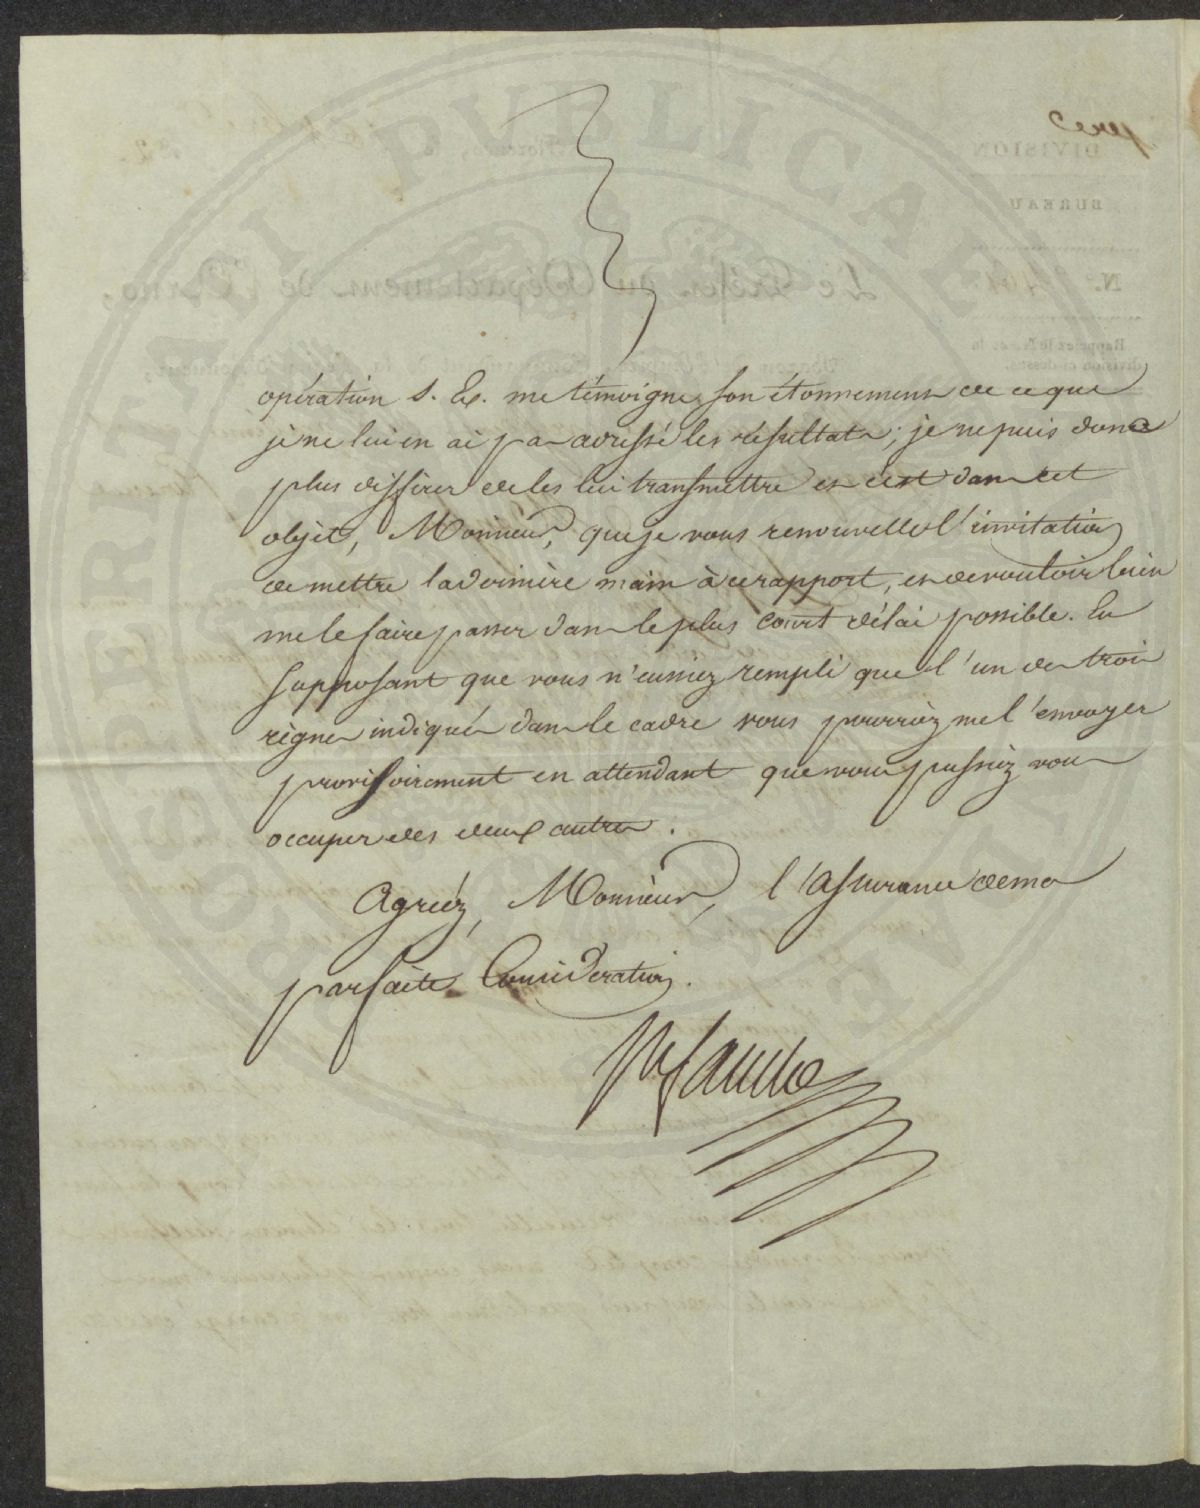 opération S. Ex. me témoigne son étonnement de ce que
je ne lui en ai pas adressé les résultats ; je ne puis donc
plus différer de les lui transmettre et c'est dans cet
objet, Monsieur, que je vous renouvelle l'invitation
de mettre la dernière main à ce rapport, et de vouloir bien
me le faire passer dans le plus court délai possible. En
supposant que vous n'eussiez rempli que l'un des trois
règnes indiqués dans le cadre vous pourriez me l'envoyer
provisoirement en attendant que vous pussiez vous
occuper des deux autres.
Agréez, Monsieur, l'assurance de ma
parfaite Considération.